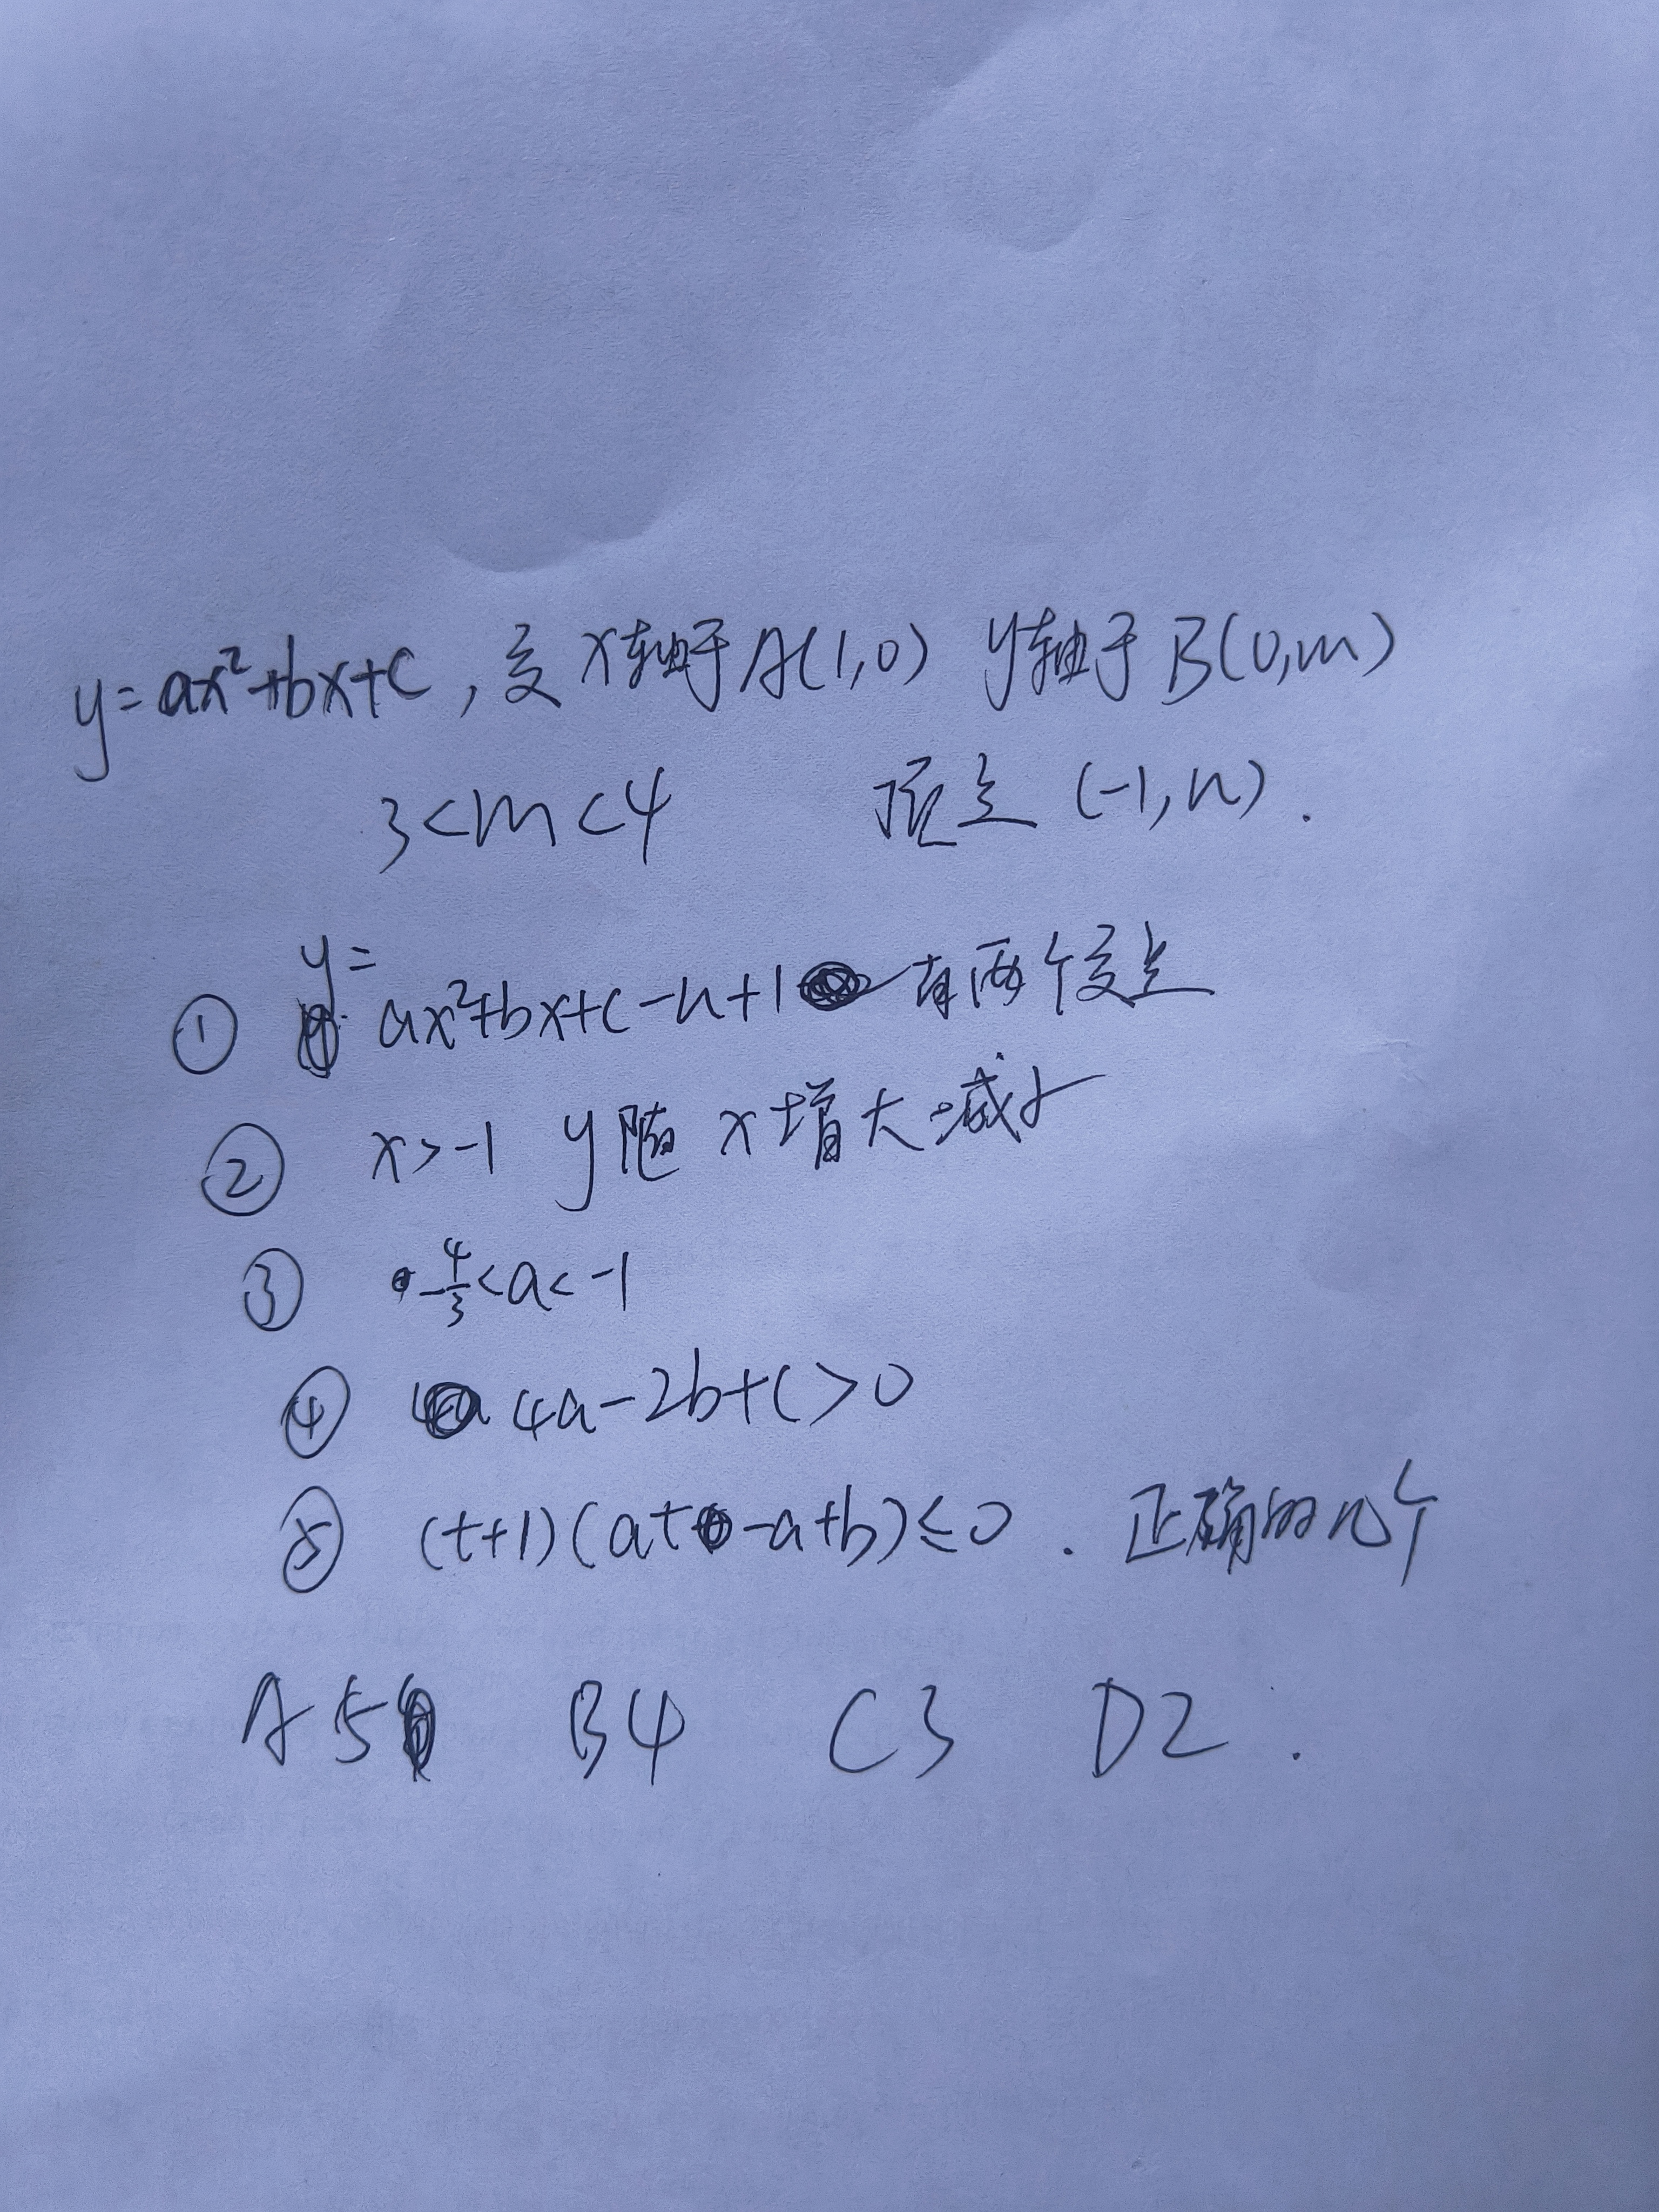 y=ax²+bx+c，交x轴于A(1,0) y轴于B(0,m)
3<m<4 顶点(-1,n).
① y=ax²+bx+c-n+1有两个交点
② x>-1 y随x增大减少
③ -4/3<a<-1
④ 4a-2b+c>0
⑤ (t+1)(at-a+b)≤0. 正确的几个
A5 B4 C3 D2.